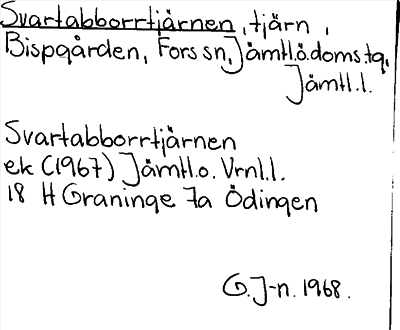 Svartabborrtjärnen, tjärn,
Bispgården, Fors sn, Jämtl.ö.doms.tg,
Jämtl.l.
Svartabborrtjärnen
ek (1967) Jämtl.o. Vrnl.l.
18 H Graninge 7a Ödingen
G.J-n. 1968.